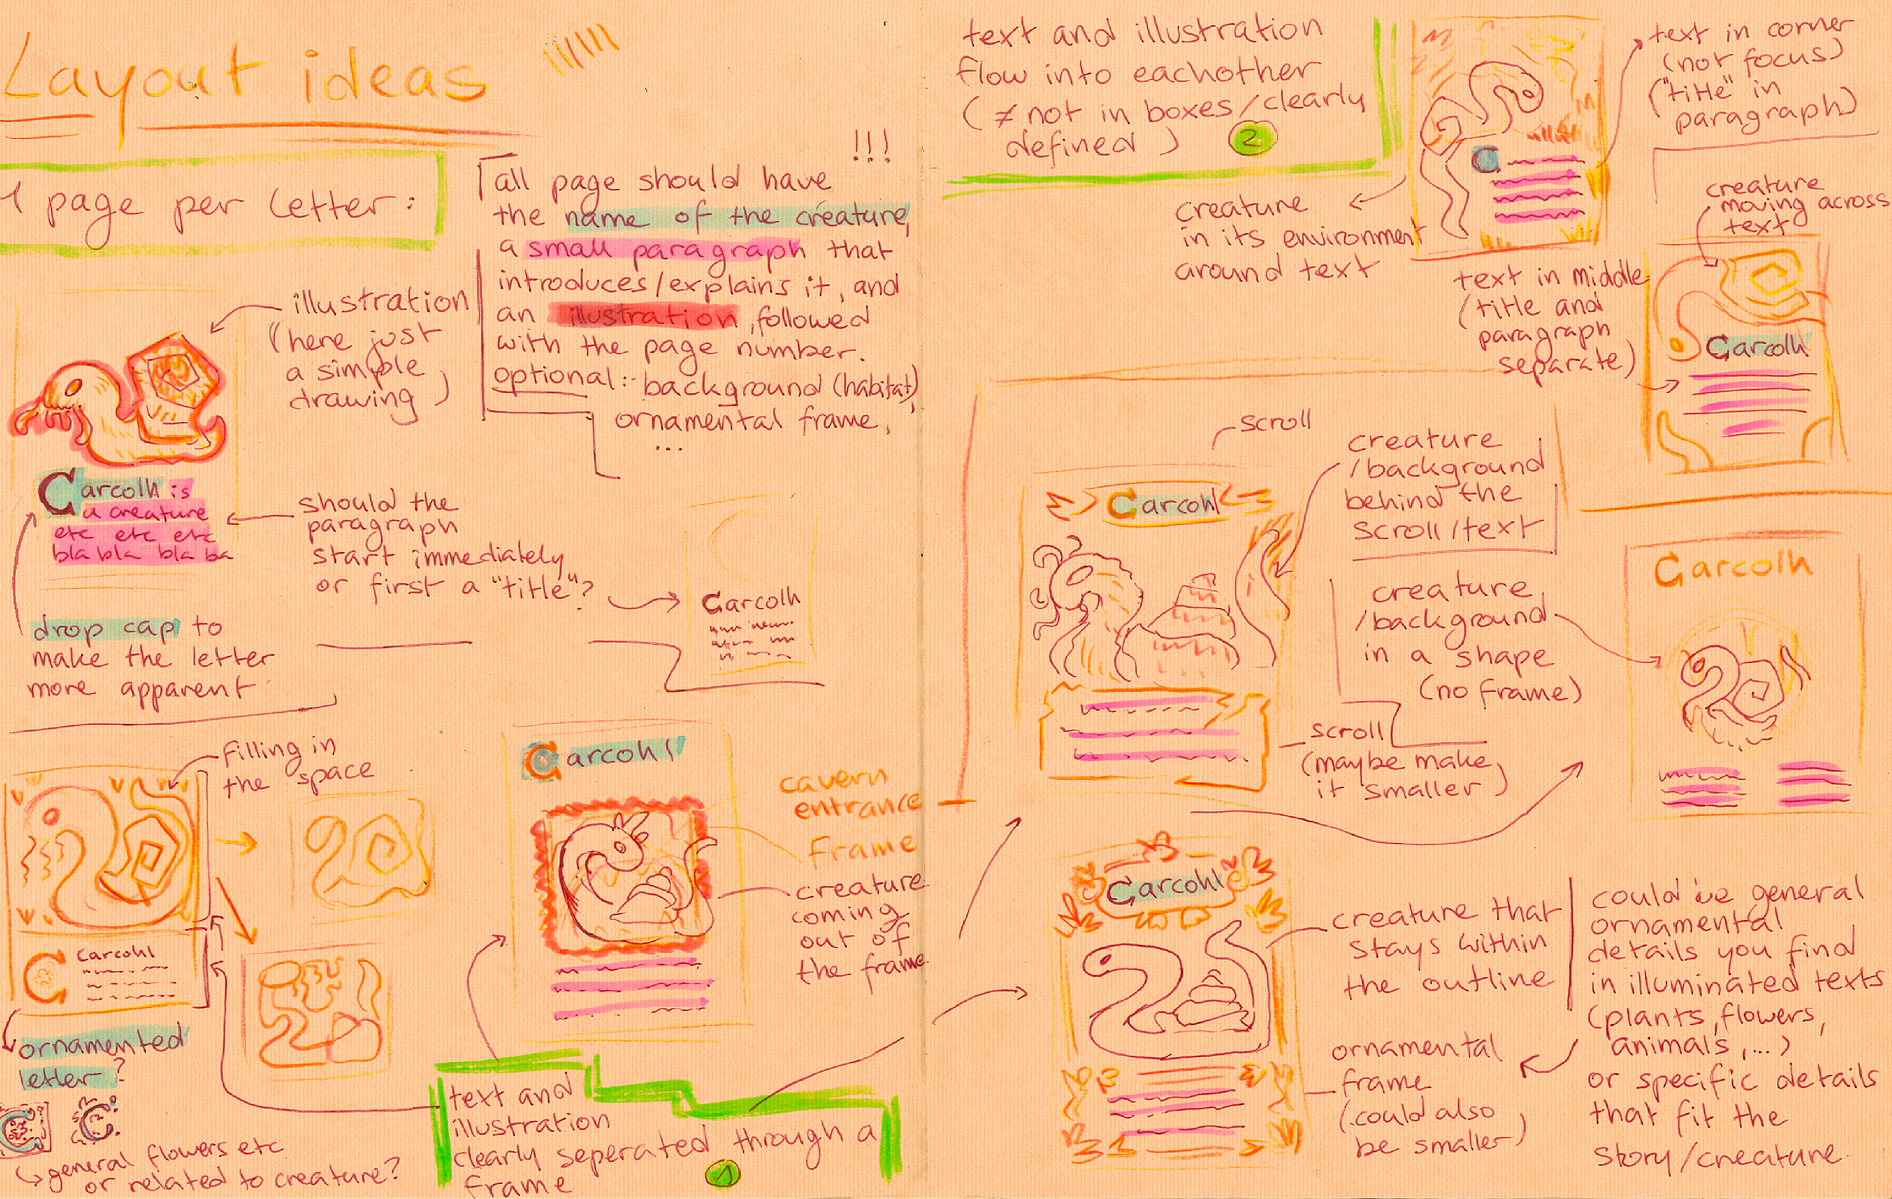 Layout ideas
1 page per letter:
!!!
all page should have
the name of the creature,
a small paragraph that
introduces/explains it, and
an illustration, followed
with the page number.
optional: - background (habitat)
ornamental frame,
...
illustration
(here just
a simple
drawing)
Carcolh is
a creature
etc etc etc
bla bla bla ba
should the
paragraph
start immediately
or first a "title"?
Carcolh
drop cap to
make the letter
more apparent
filling in
the space
C
Carcohl
ornamented
letter?
C
C
general flowers etc
or related to creature?
Carcohl
cavern
entrance
frame
creature
coming
out of
the frame
text and
illustration
clearly seperated through a
frame
1
text and illustration
flow into eachother
(≠ not in boxes/clearly
defined)
2
C
text in corner
(not focus)
("title" in
paragraph)
creature
in its environment
around text
creature
moving across
text
text in middle
(title and
paragraph
separate)
Carcolh
scroll
Carcohl
creature
/background
behind the
scroll/text
creature
/background
in a shape
(no frame)
Carcolh
scroll
(maybe make
it smaller)
Carcohl
creature that
stays within
the outline
ornamental
frame
(could also
be smaller)
could be general
ornamental
details you find
in illuminated texts
(plants, flowers,
animals, ...)
or specific details
that fit the
story/creature.